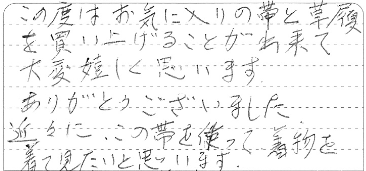 この度はお気に入りの帯と草履
を買い上げることが出来て
大変嬉しく思います
ありがとうございました
近々に、この帯を使って着物を
着て見たいと思います.